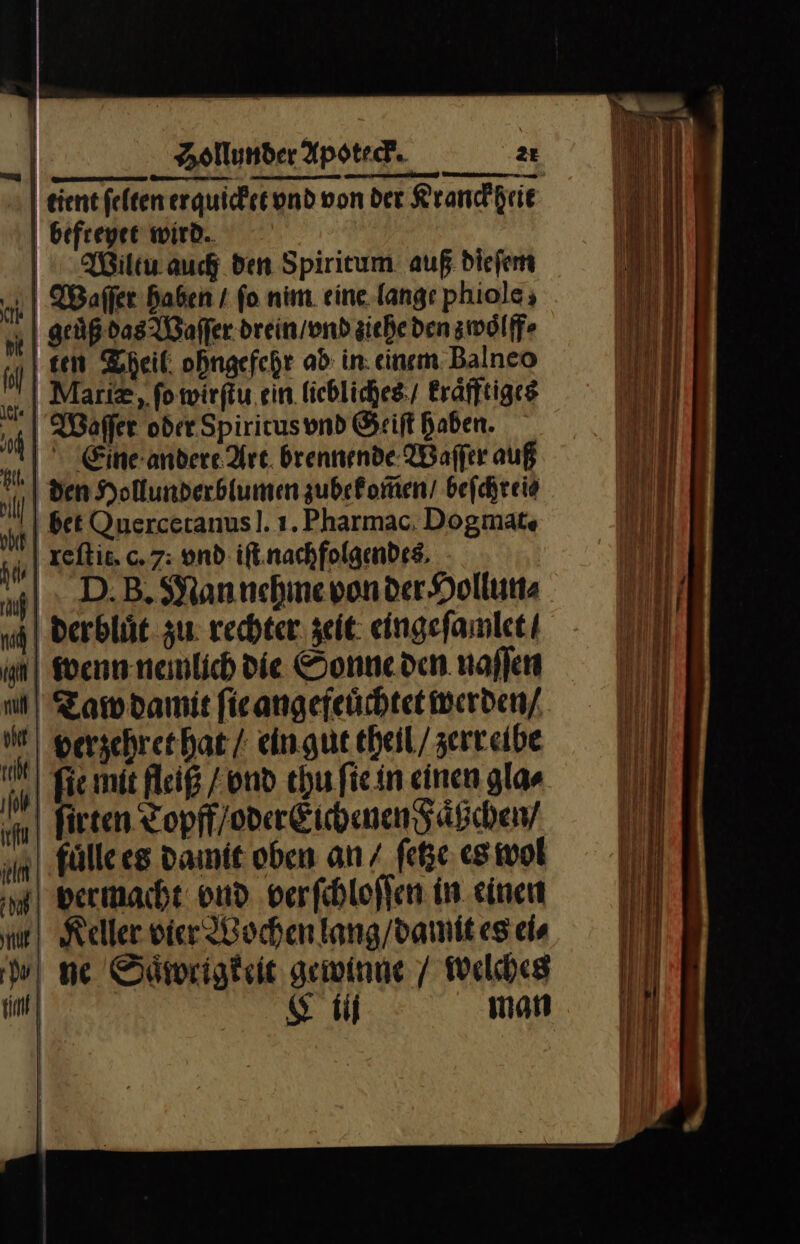 Hollunder Apoteck. 21
tient ſelten erquicket vnd von der Kranckheit
befreyet wird.
Wiltu auch den Spiritum auß dieſem
Waſſer haben / ſo nim eine lange phiole,
geüß das Waſſer drein/vnd ziehe den zwoͤlff-
ten Theil ohngefehr ab in einem Balneo
Mariæ, ſo wirſtu ein liebliches / kraͤfftiges
Waſſer oder Spiritus vnd Geiſt haben.
Eine andere Art brennende Waſſer auß
den Hollunderblumen zubekom̃en/ beſchrei-
bet Quercetanus l. 1. Pharmac. Dogmat.
reſtit. c. 7: vnd iſt nachfolgendes.
D. B. Man nehme von der Hollun-
derbluͤt zu rechter zeit eingeſamlet /
wenn nemlich die Sonne den naſſen
Taw damit ſie angefeuͤchtet werden/
verzehret hat / ein gut theil / zerreibe
ſie mit fleiß / vnd thu ſie in einen gla-
ſirten Topff/oder Eichenen Faͤßchen/
fuͤlle es damit oben an / ſetze es wol
vermacht vnd verſchloſſen in einen
Keller vier Wochen lang/damit es ei-
ne Saͤwrigkeit gewinne / welches
C iij man